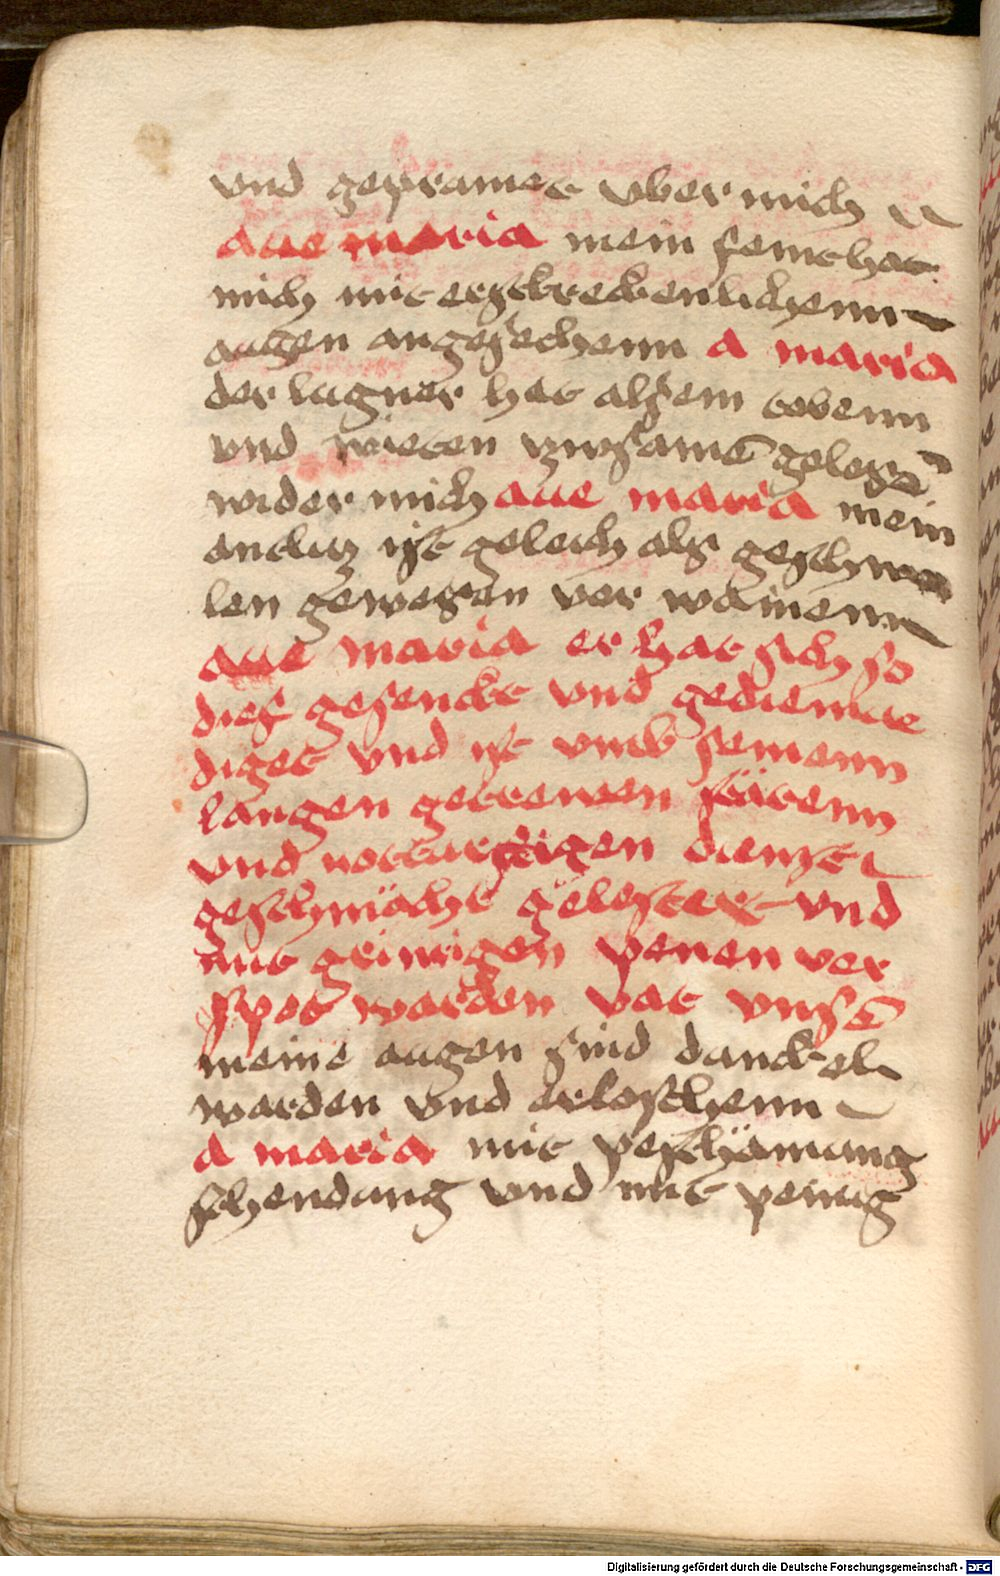 vnd gepramet vber mich
aue maria mein feint hat
mich mit erschreckenlichenn
augen angesechenn a maria
der lugner hat als ein tobenn
vnd wieten zwsamē gelegt
wider mich aue maria mein
antlutz ist geleich als geschwol
len gewesen vor wainenn
aue maria er hat sich so
dief gesenckt vnd gediemue
diget vnd ist vmb seinenn
langen getrewen stäten
vnd notturftigen dienst
geschmächt gelestert vnd
mit grimigen penen ver
spot worden pat vnsē
meine augen sind danckel
warden vnd erloschenn
a maria mit peschämung
schendung vnd mit peinig
Digitalisierung gefördert durch die Deutsche Forschungsgemeinschaft - DFG